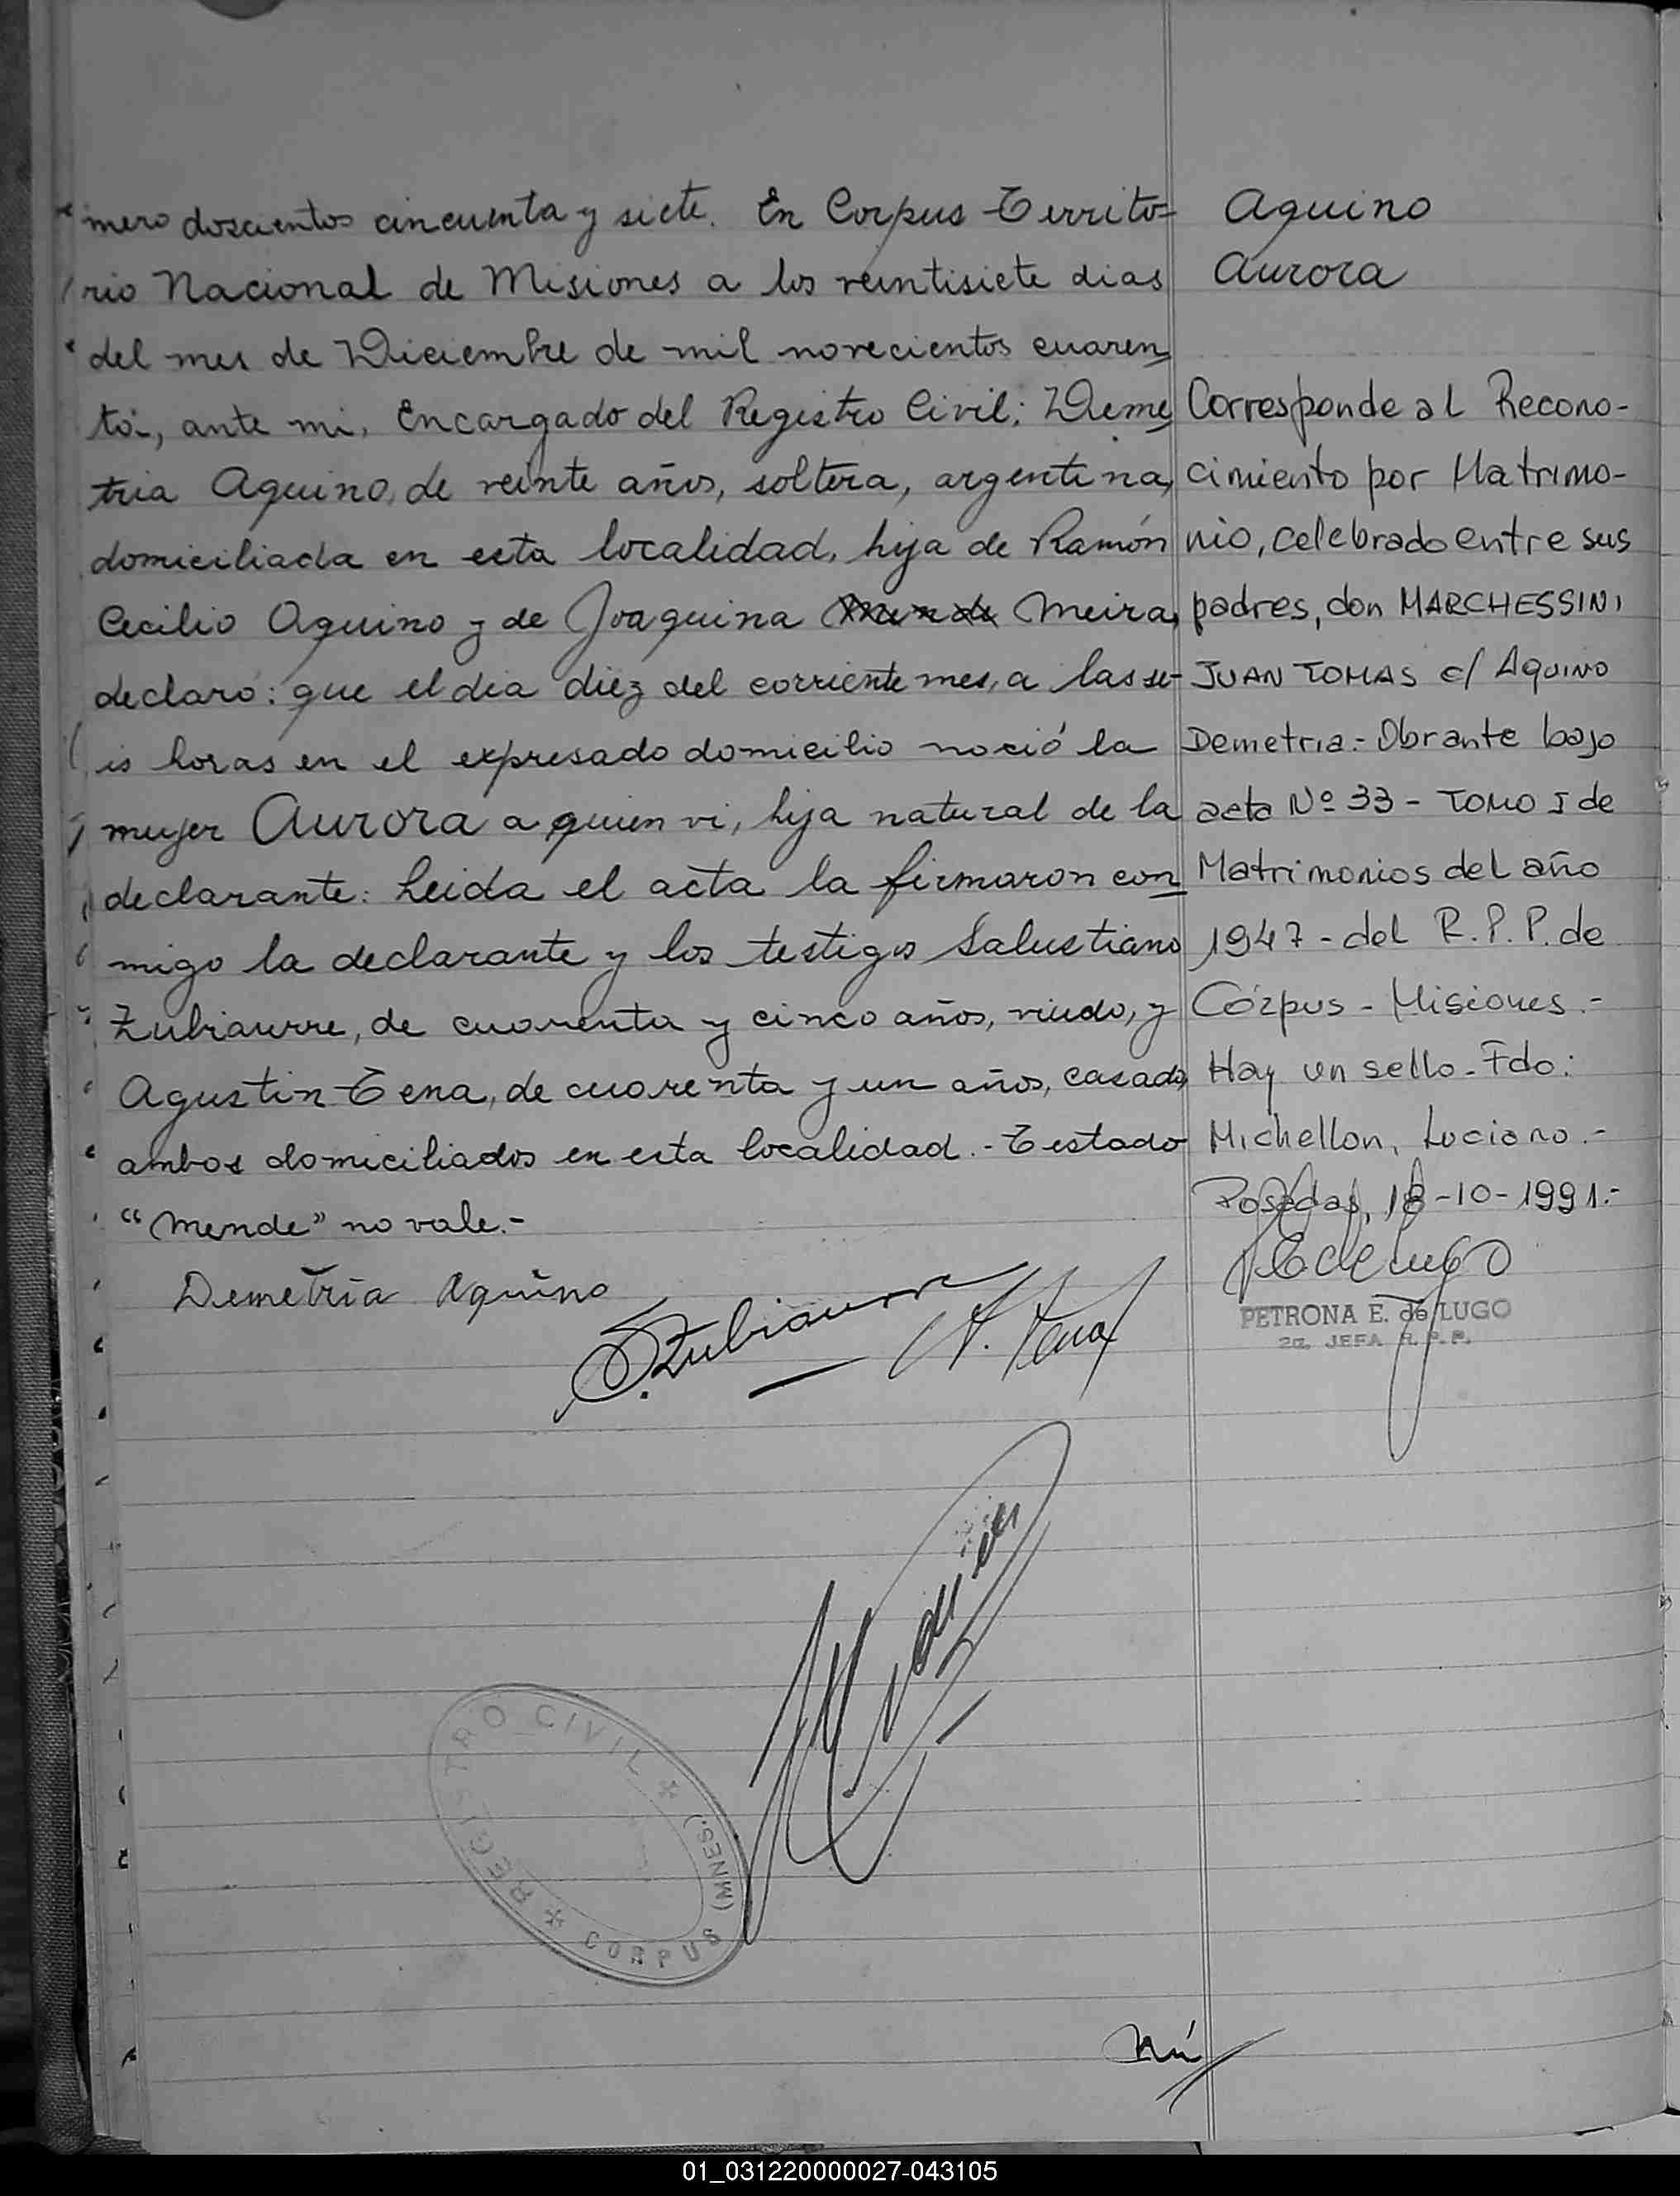 mero doscientos cincuenta y siete. En Corpus Territo=
rio Nacional de Misiones a los veintisiete dias
del mes de Diciembre de mil novecientos cuaren=
ta, ante mi, Encargado del Registro Civil; Deme=
tria Aquino, de veinte años, soltera, argentina,
domiciliada en esta localidad, hija de Ramón
Cecilio Aquino y de Joaquina Mende Meira,
declaró: que el dia diez del corriente mes, a las se-
is horas en el expresado domicilio nació la
mujer Aurora a quien vi, hija natural de la
declarante: Leida el acta la firmaron con=
migo la declarante y los testigos Salustiano
Zubiaurre, de cuarenta y cinco años, viudo, y
Agustin Tena, de cuarenta y un años, casado,
ambos domiciliados en esta localidad.- Testado
"Mende" no vale.-
Demetria Aquino
S. Zubiaurre
A. Tena
REGISTRO CIVIL
CORPUS (MNES.)
Nú
Aquino
Aurora
Corresponde al Recono-
cimiento por Matrimo-
nio, celebrado entre sus
padres, don MARCHESSINI
JUAN TOMAS c/ AQUINO
Demetria.- Obrante bajo
acta Nº 33 - TOMO I de
Matrimonios del año
1947 - del R.P.P. de
Córpus - Misiones.-
Hay un sello - Fdo:
Michellon, Luciano.-
Posadas, 18-10-1991.-
PETRONA E. de LUGO
2a. JEFA R.P.P.
01_031220000027-043105